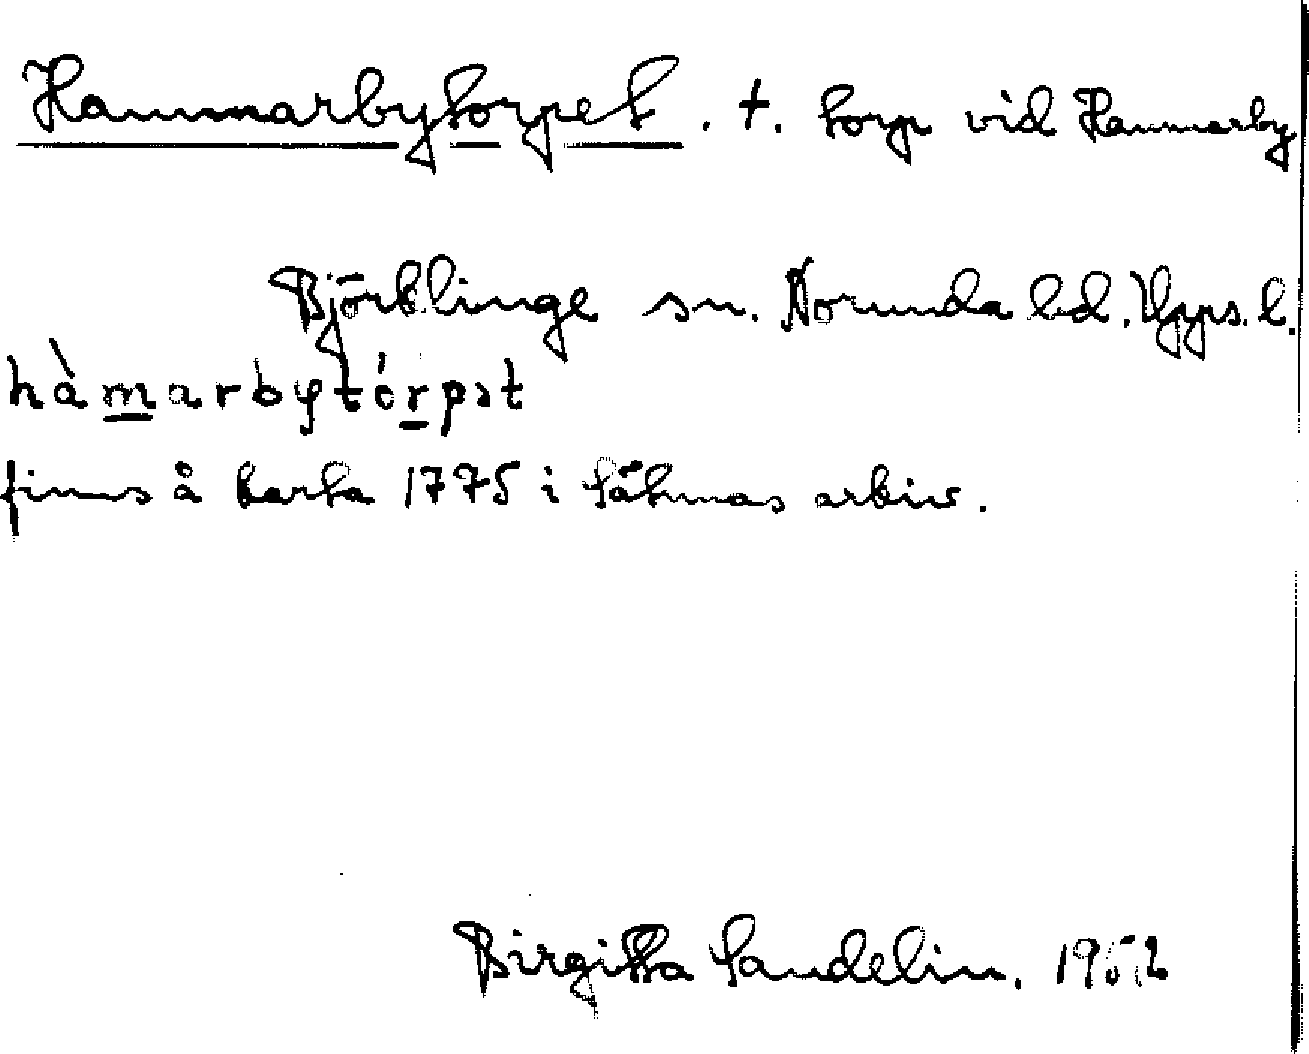 Hammarbytorpet. †. torp vid Hammarby
Björklinge sn. Norunda hd. Upps. l.
hàmarbytórpət
finns å karta 1775 i Sätunas arkiv.
Birgitta Sandelin. 1952